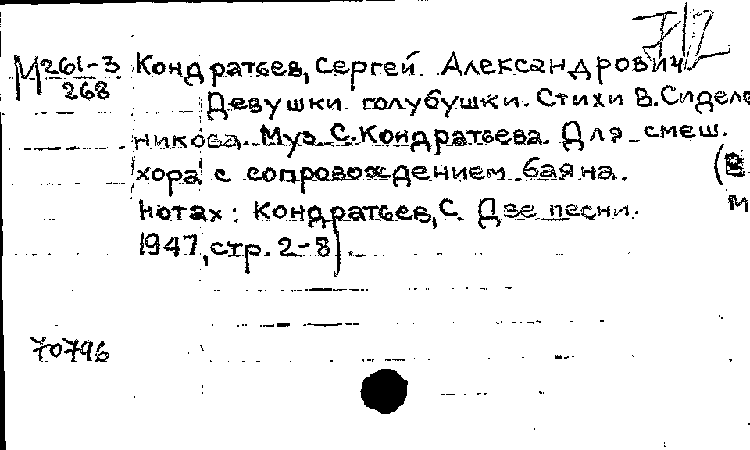 М 261-3 Кондратьев, Сергей Александрович
268 Девушки голубушки. Стихи В. Сидель
никова. Муз. С. Кондратьева. Для смеш.
хора с сопровождением баяна. (В
нотах: Кондратьев, С. Две песни. М
1947, стр. 2-8).
70796